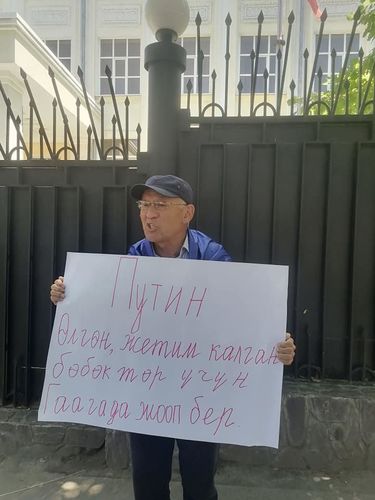 Путин
Өлгөн, жетим калган
бөбөктөр үчүн
Гаагада жооп бер.